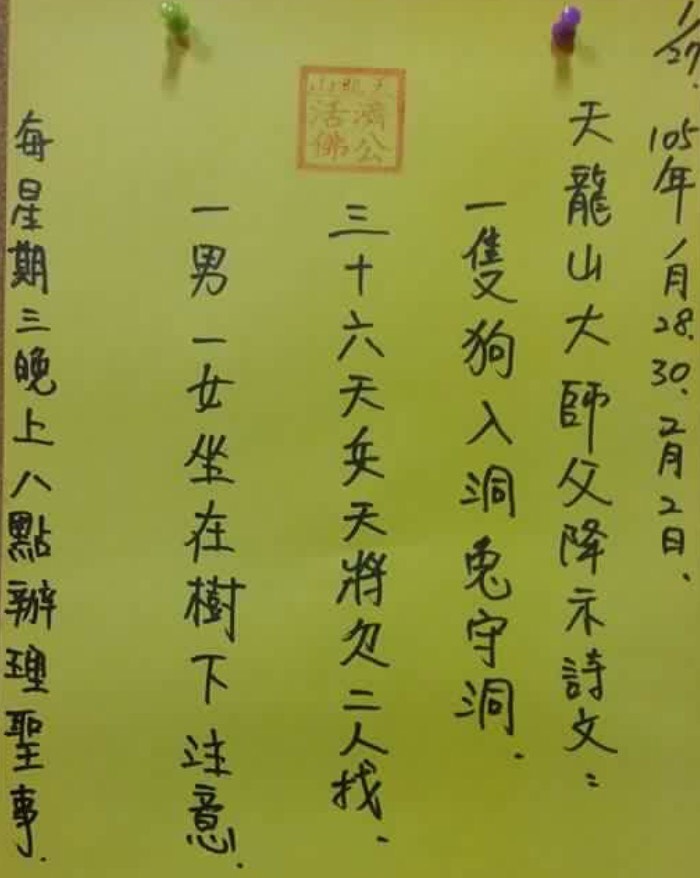 1/27.
105年1月28.30.2月2日.
天龍山大師父降示詩文：
一隻狗入洞兔守洞.
三十六天兵天將欠二人找.
一男一女坐在樹下注意.
每星期三晚上八點辦理聖事.
天龍山
濟公
活佛